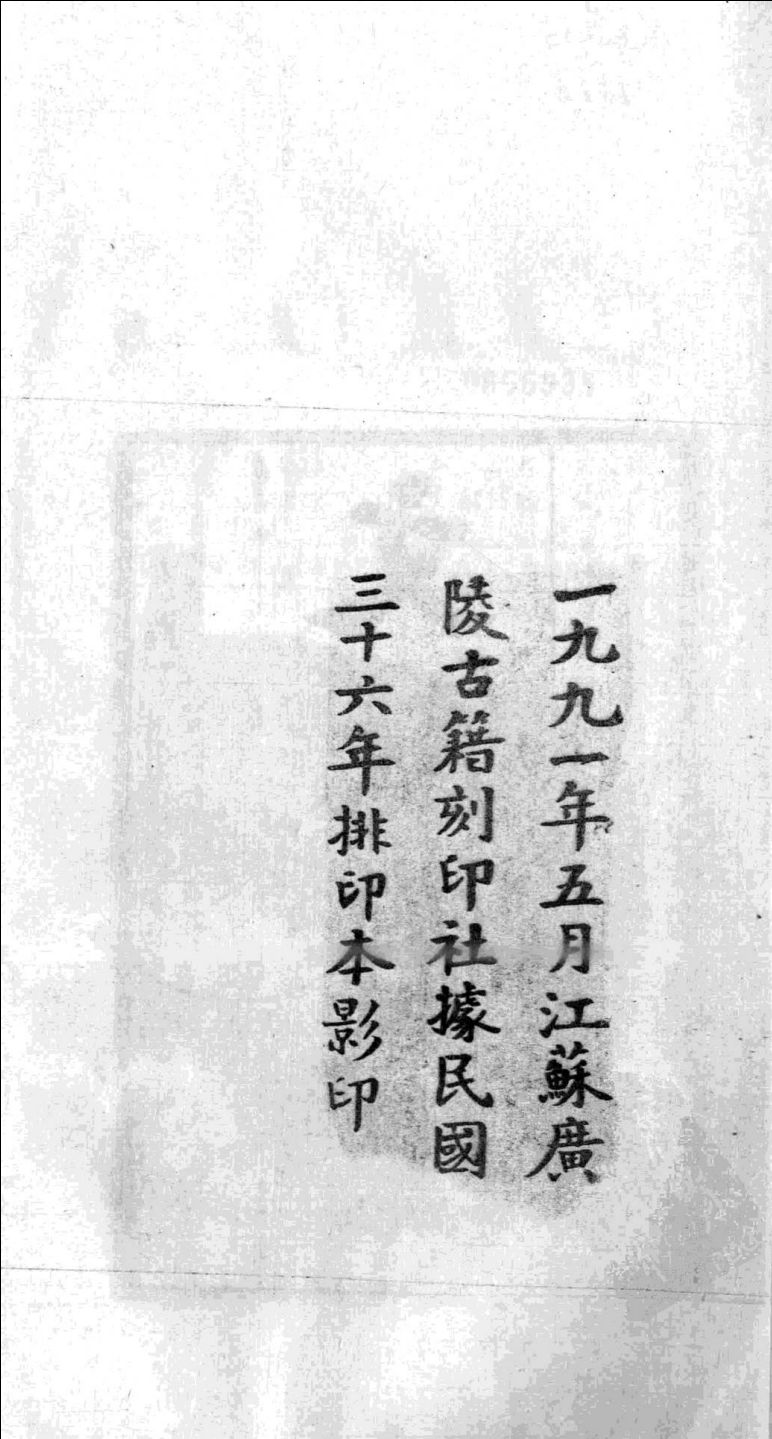 一九九一年五月江蘇廣
陵古籍刻印社據民國
三十六年排印本影印